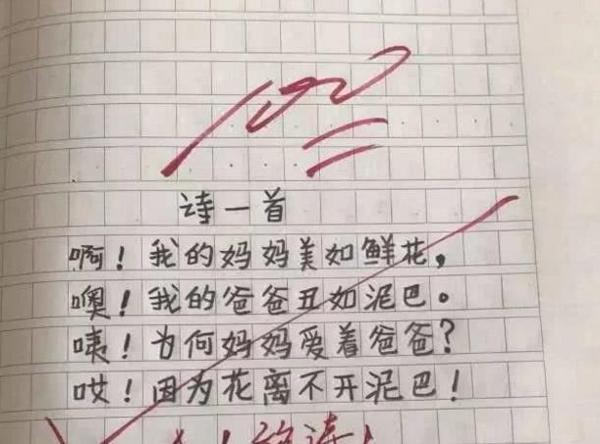 100
诗一首
啊！我的妈妈美如鲜花，
噢！我的爸爸丑如泥巴。
咦！为何妈妈爱着爸爸？
哎！因为花离不开泥巴！